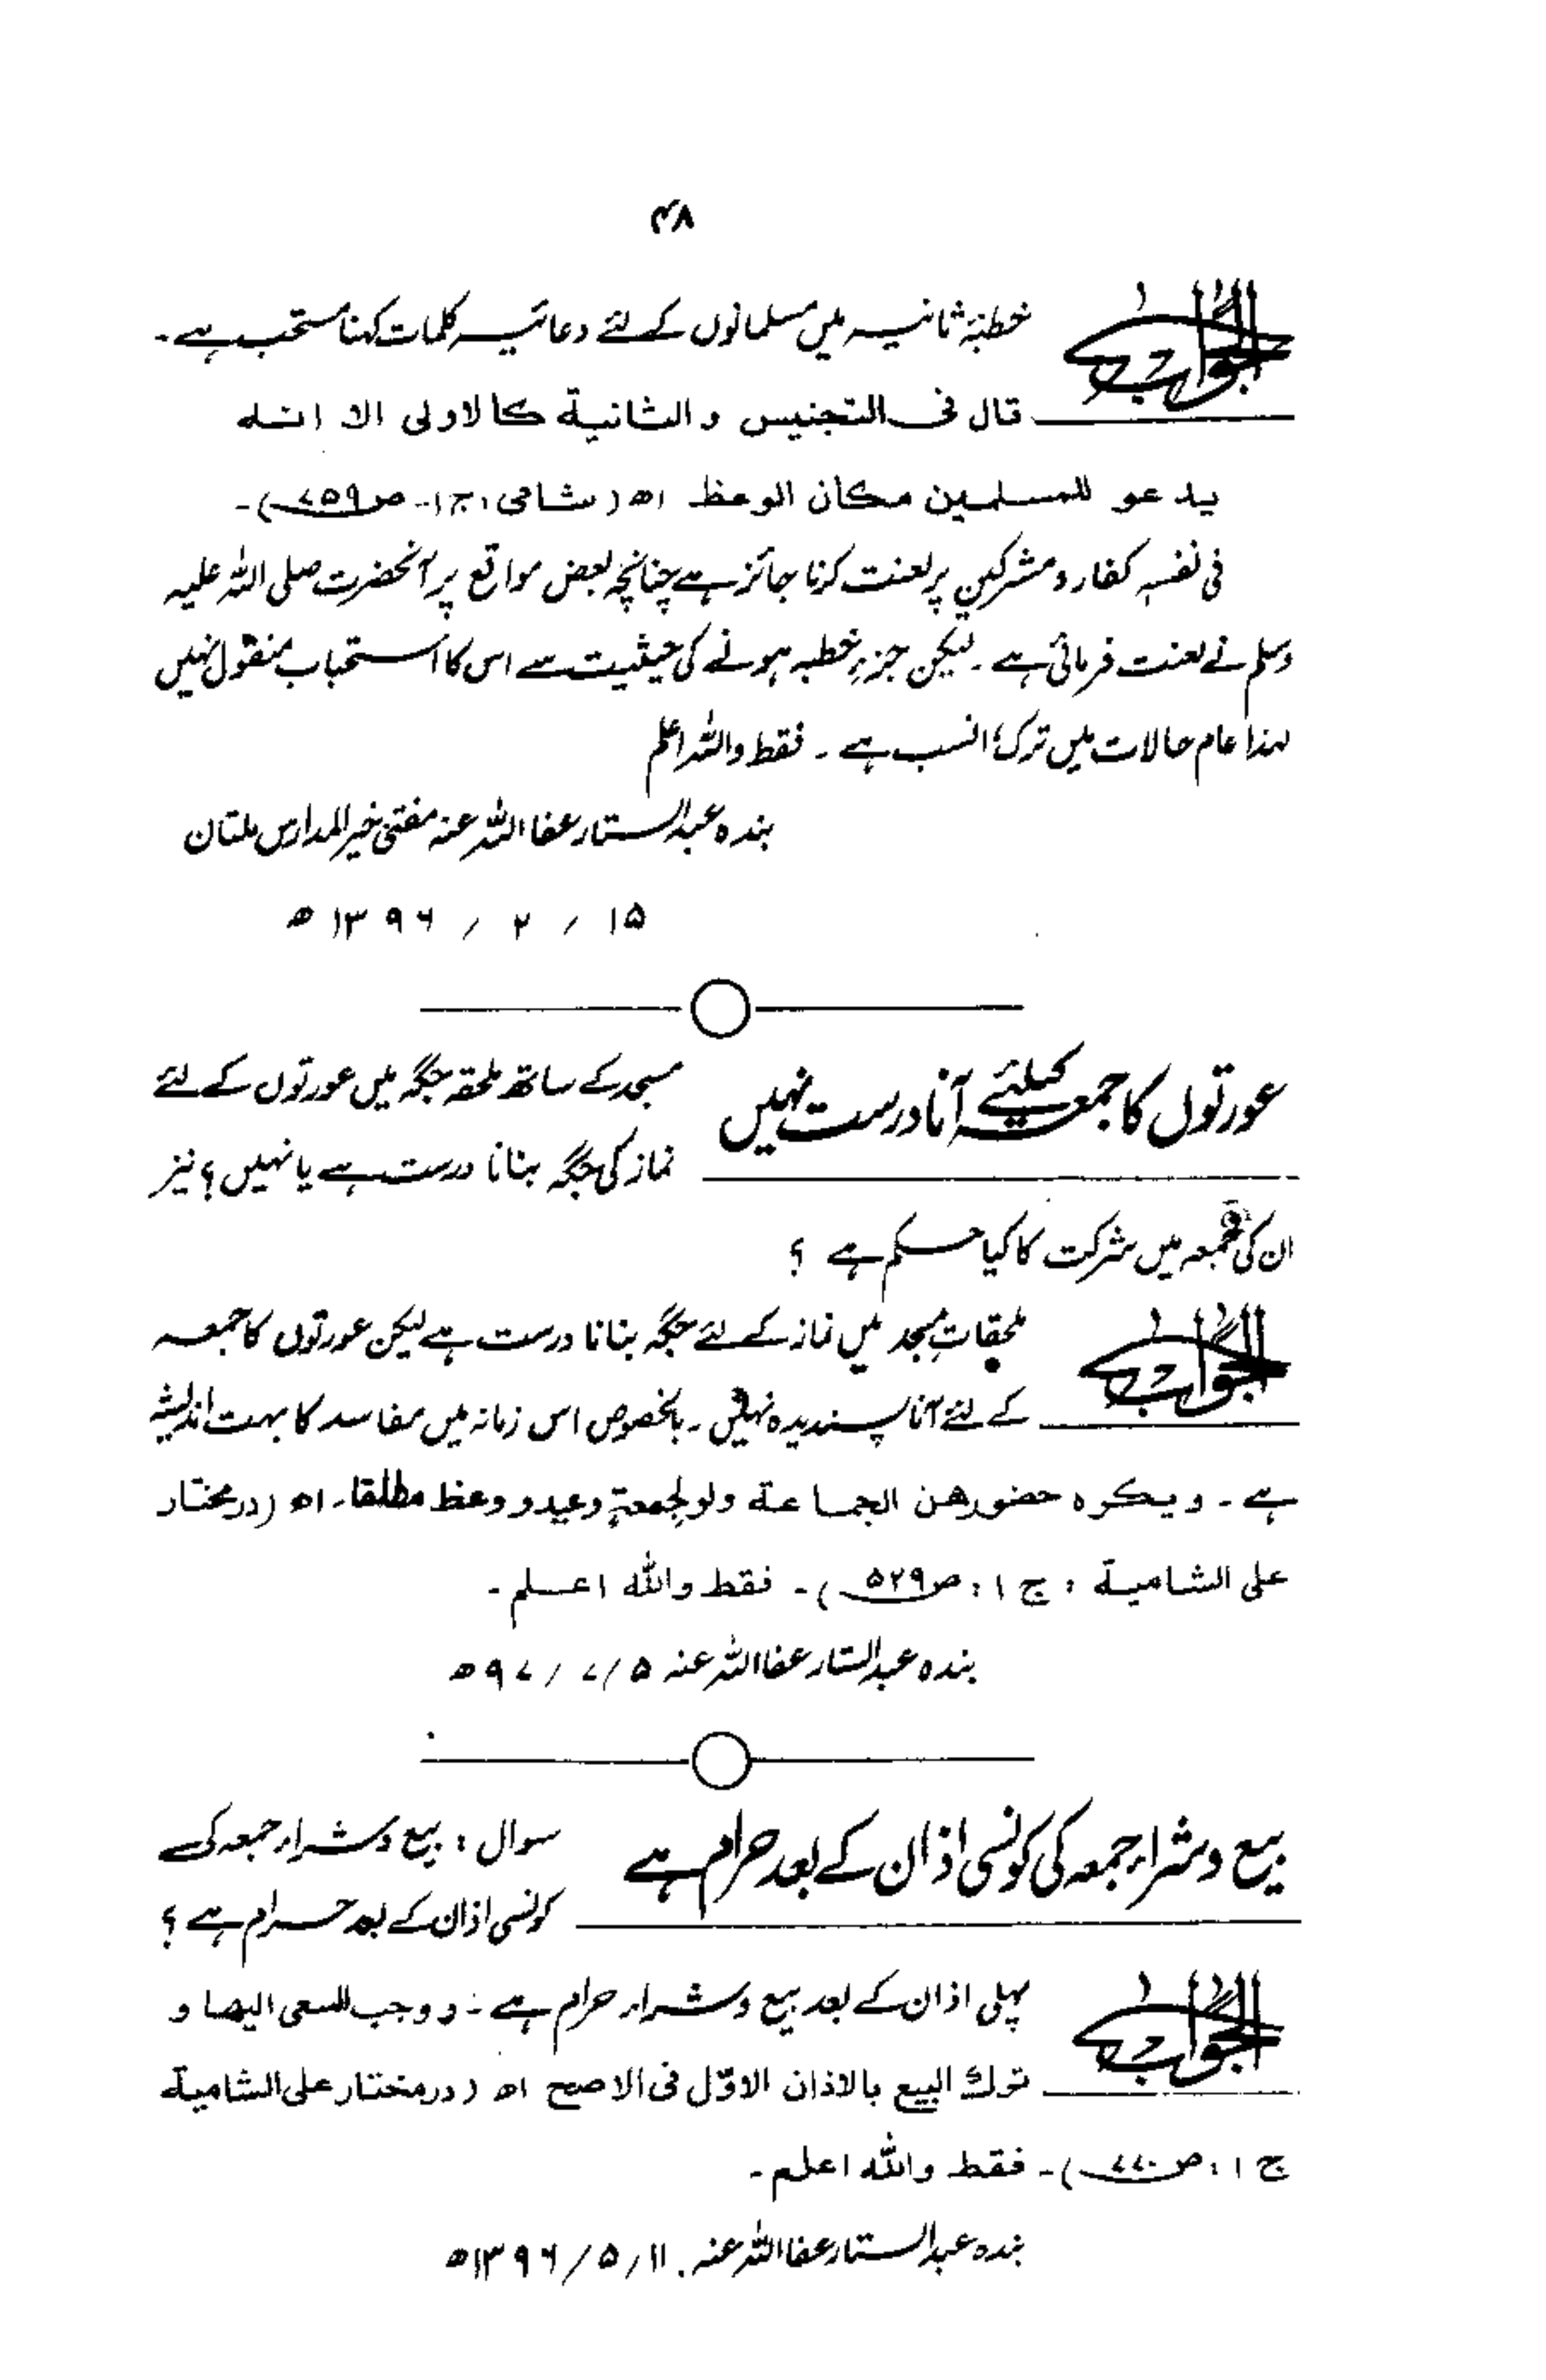 ۴۸
الجواب خطبۂ ثانیہ میں مسلمانوں کے لئے دعائیہ کلمات کہنا مستحب ہے۔
قال فی التجنیس و الثانیة کالاولی الا انه
یدعو للمسلمین مکان الوعظ اھ (شامی، ج۱۔ ص۷۵۹)۔
فی نفسہ کفار و مشرکین پر لعنت کرنا جائز ہے چنانچہ بعض مواقع پر آنحضرت صلی اللہ علیہ
وسلم نے لعنت فرمائی ہے۔ لیکن جزءِ خطبہ ہونے کی حیثیت سے اس کا استحباب منقول نہیں
لہذا عام حالات میں ترک انسب ہے۔ فقط واللہ اعلم
بندہ عبدالستار عفا اللہ عنہ مفتی خیر المدارس ملتان
۱۵ / ۲ / ۱۳۹۶ھ
عورتوں کا جمعہ کیلئے آنا درست نہیں
مسجد کے ساتھ ملحقہ جگہ میں عورتوں کے لئے
نماز کی جگہ بنانا درست ہے یا نہیں؟ نیز
ان کی جمعہ میں شرکت کا کیا حکم ہے ؟
الجواب ملحقاتِ مسجد میں نماز کے لئے جگہ بنانا درست ہے لیکن عورتوں کا جمعہ
کے لئے آنا پسندیدہ نہیں۔ بالخصوص اس زمانہ میں مفاسد کا بہت اندیشہ
ہے۔ ویکره حضورهن الجماعة ولو لجمعةٍ وعید و وعظ مطلقا۔ اھ (درمختار
علی الشامیة : ج ۱ : ص۵۲۹)۔ فقط واللہ اعلم۔
بندہ عبدالستار عفا اللہ عنہ ۵/۷/۹۷ھ
بیع و شراء جمعہ کی کونسی اذان کے بعد حرام ہے
سوال : بیع و شراء جمعہ کی
کونسی اذان کے بعد حرام ہے ؟
الجواب پہلی اذان کے بعد بیع و شراء حرام ہے : و وجب للسعی الیها و
ترك البیع بالاذان الاوّل فی الاصح اھ (درمختار علی الشامیة
ج ۱ : ص۷۷۰)۔ فقط واللہ اعلم۔
بندہ عبدالستار عفا اللہ عنہ۔ ۱۱/۵/۱۳۹۶ھ